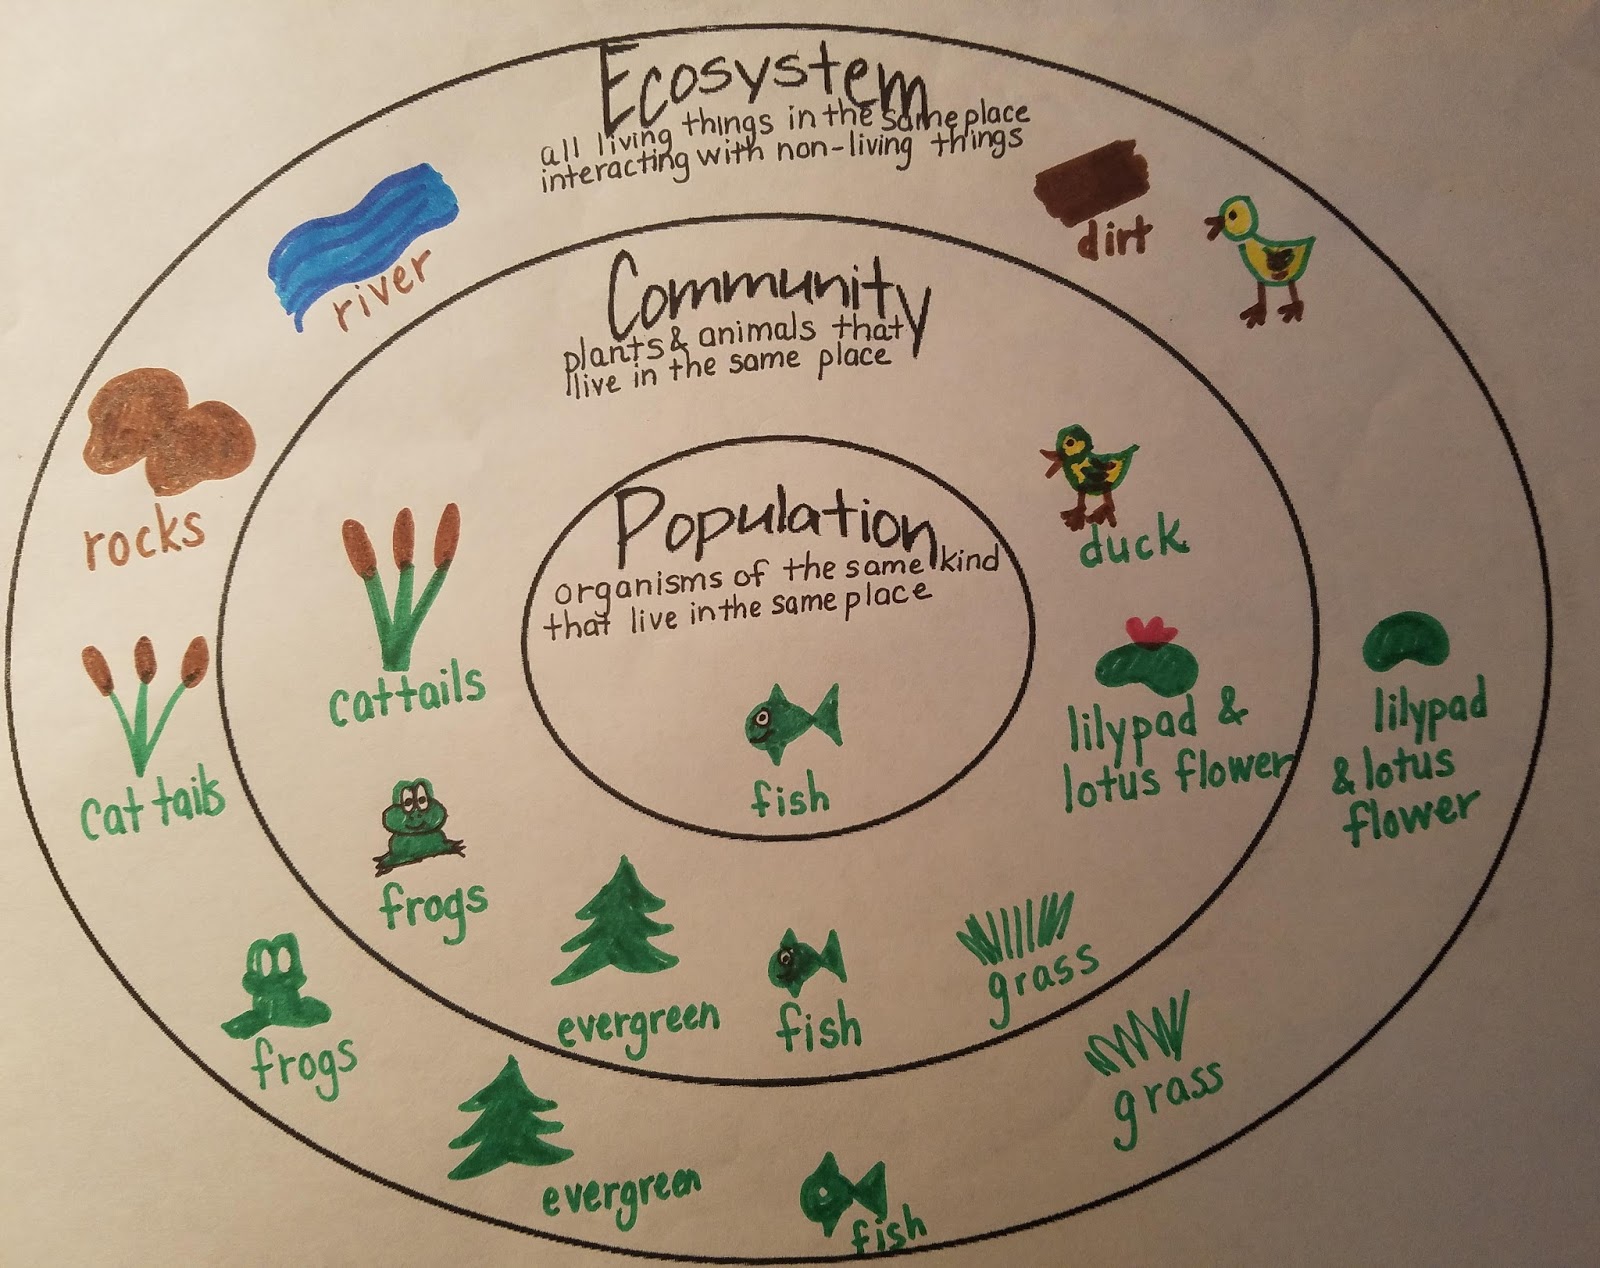 Ecosystem
all living things in the same place
interacting with non-living things
river
dirt
rocks
cat tails
frogs
evergreen
fish
grass
lilypad
& lotus
flower
Community
plants & animals that
live in the same place
duck
cattails
lilypad &
lotus flower
frogs
evergreen
fish
grass
Population
organisms of the same kind
that live in the same place
fish